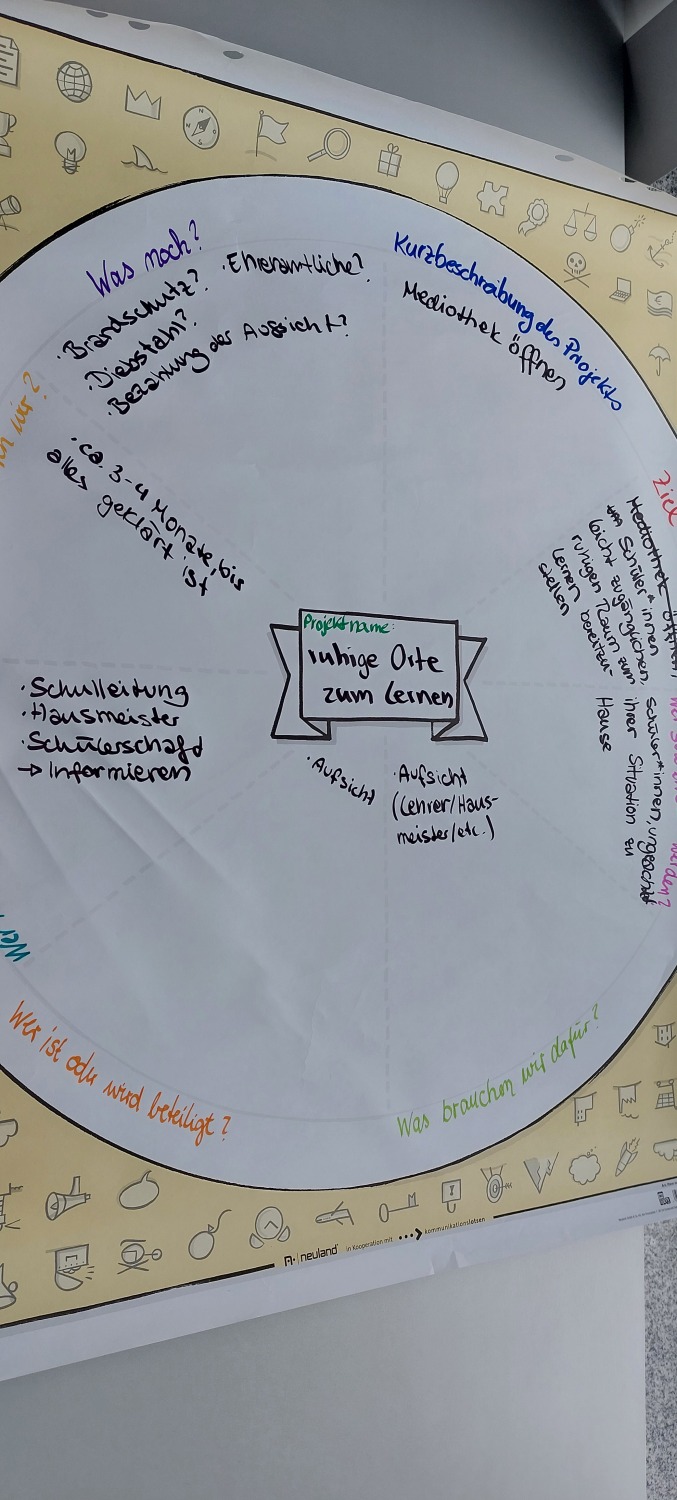 Was noch?
· Brandschutz?
· Ehrenamtliche?
· Diebstahl?
· Bezahlung der Aufsicht?
Kurzbeschreibung des Projekts
Mediothek öffnen
Ziel
Mediothek öffnen,
um Schüler*innen
leicht zugänglichen,
ruhigen Raum zum
Lernen bereitzu-
stellen
werden?
Schüler*innen, ungeachtet
ihrer Situation zu
Hause
Was brauchen wir dafür?
· Aufsicht
(Lehrer/Haus-
meister/etc.)
Wer ist oder wird beteiligt?
· Aufsicht
Wer
· Schulleitung
· Hausmeister
· Schülerschaft
→ Informieren
wir?
· ca. 3-4 Monate, bis
alles geklärt ist
Projektname:
ruhige Orte
zum Lernen
neuland
in Kooperation mit
kommunikationslotsen